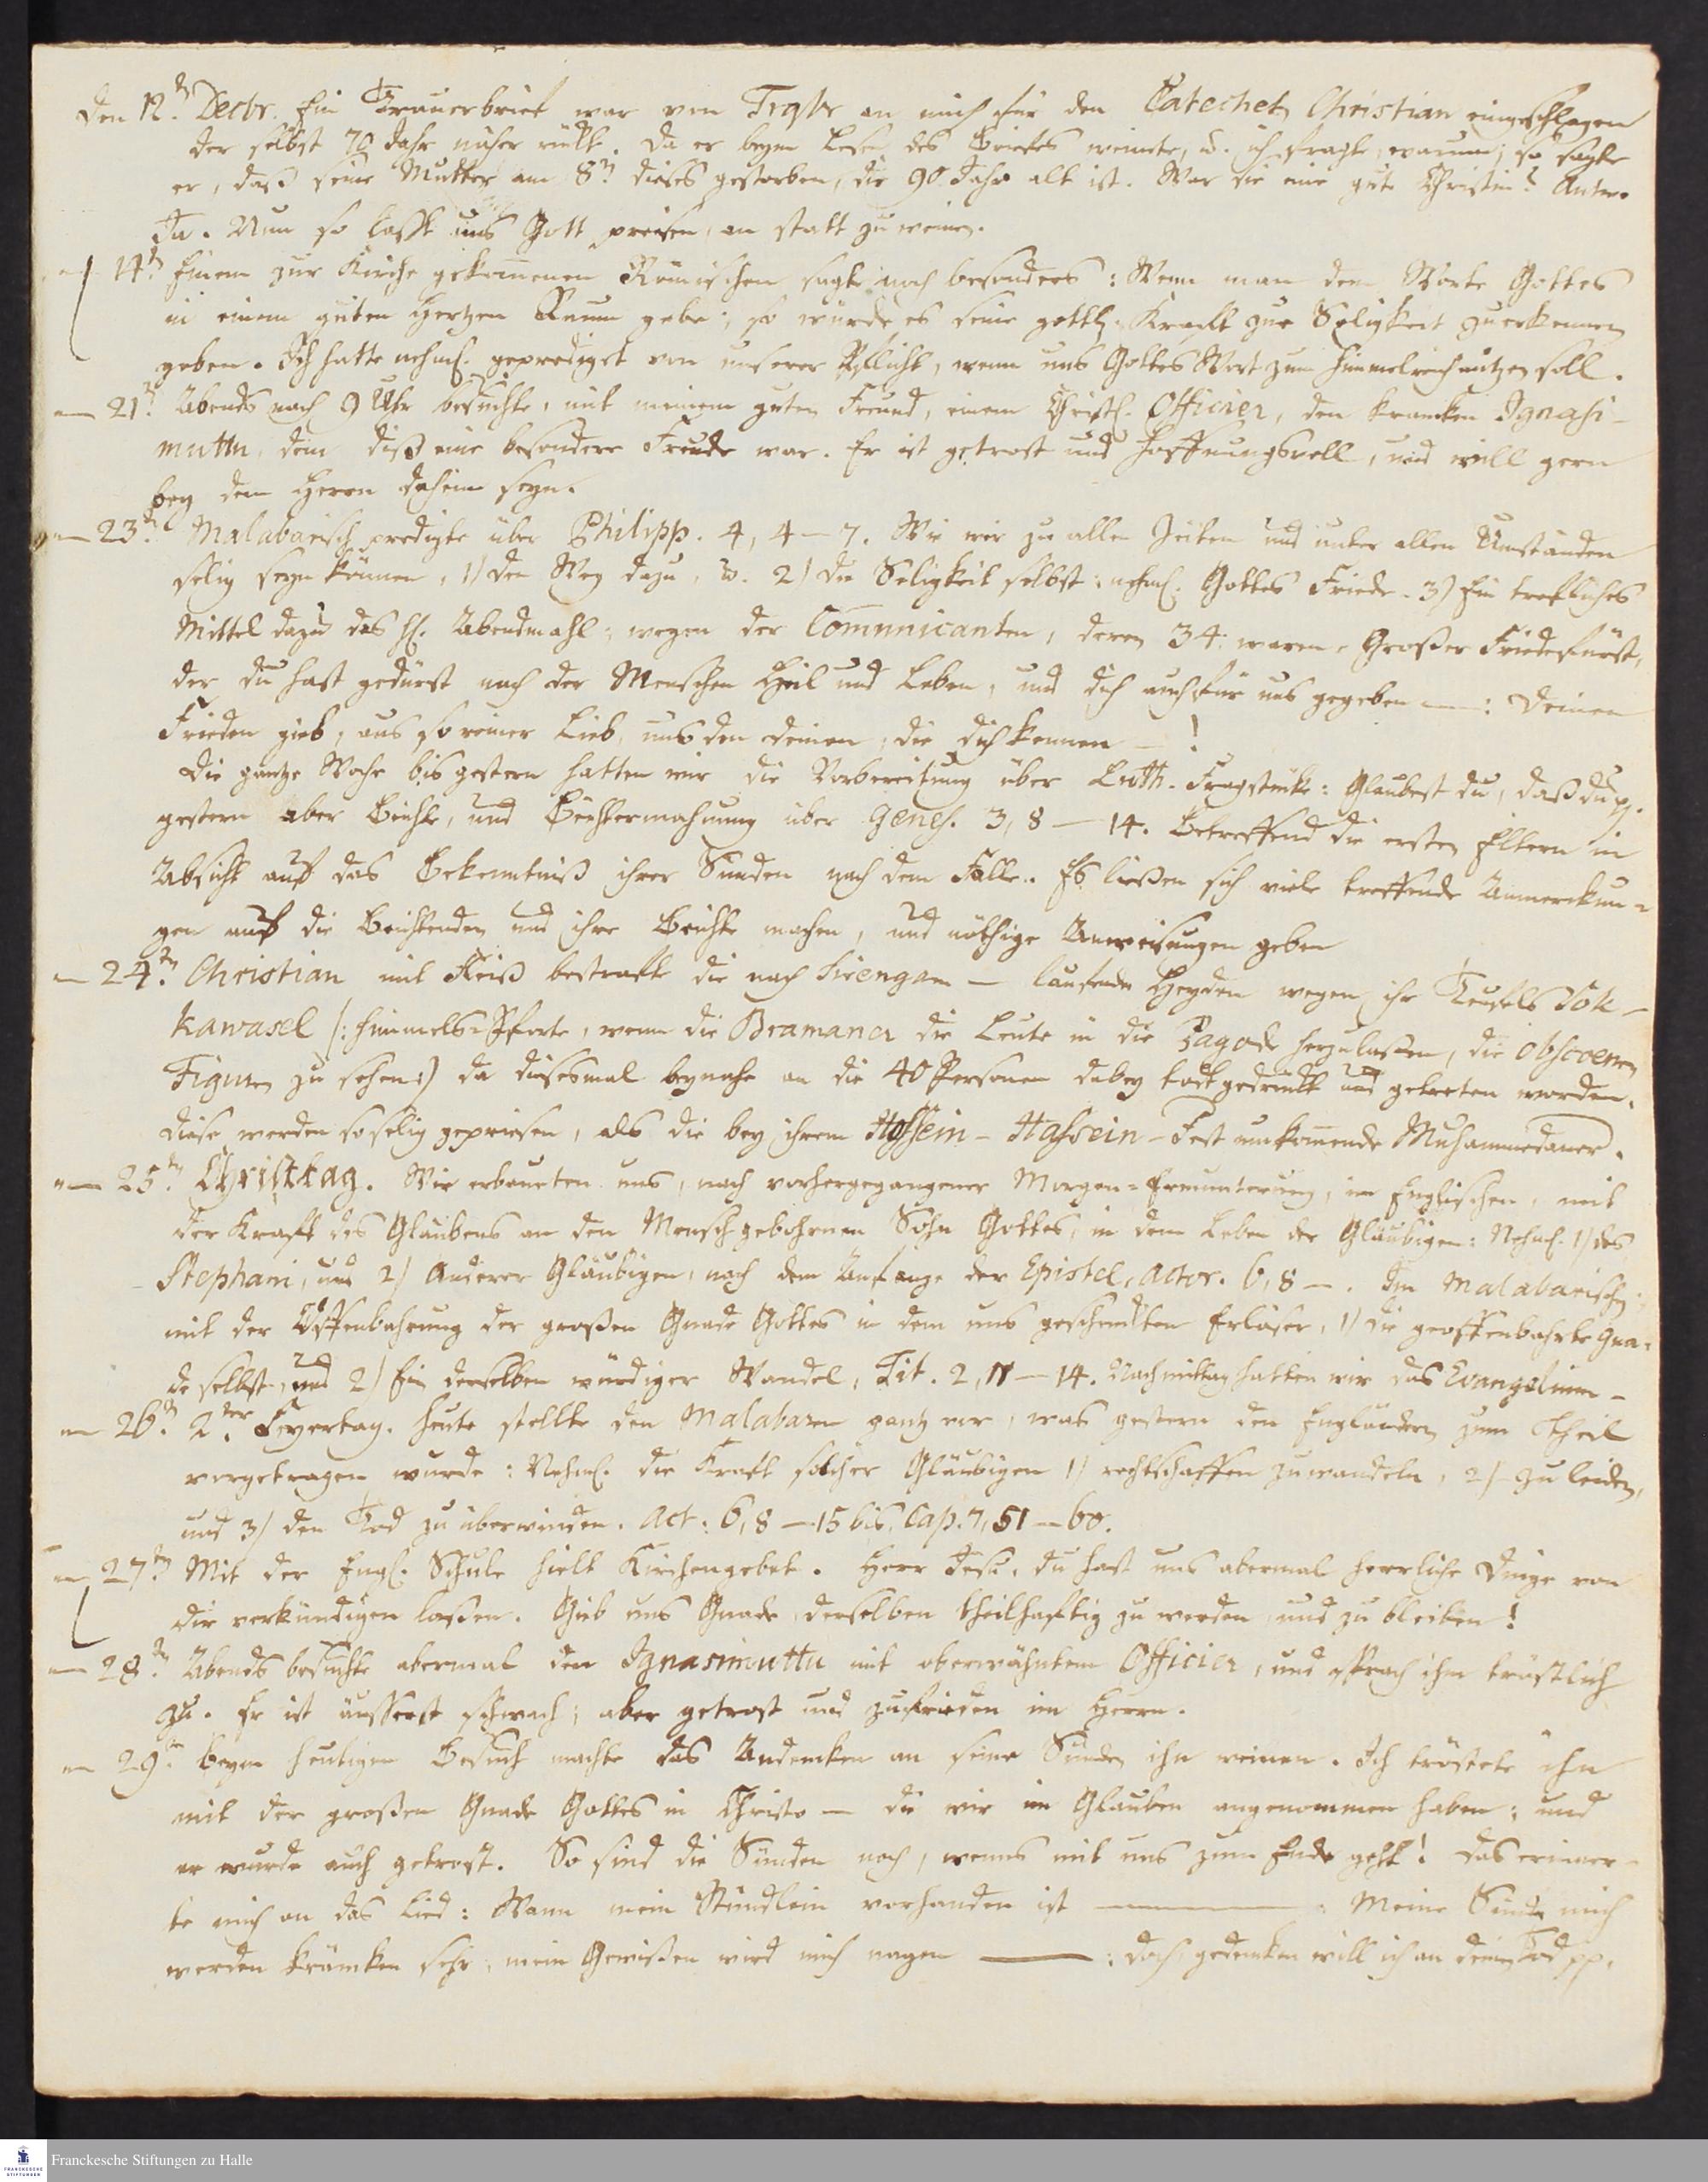 Den 12.n Decbr. Ein Trauerbrief war von Trqbr an mich für den Catechet Christian eingeschlagen
der selbst 70 Jahr näher rückt. Da er beym Lesen des Briefes weinete, u. ich fragte, warum; so sagte
er, daß seine Mutter am 8.n dieses gestorben, die 90 Jahr alt ist. War sie eine gute Christin? Antw.
Ja. Nun so lasst uns Gott preisen, an statt zu weinen.
— 14.n Einem zur Kirche gekom̅enen Römischen sagte noch besonders: Wenn man dem Worte Gottes
in einem guten Hertzen Raum gebe; so würde es seine göttl. Krafft zur Seligkeit zu erkennen
geben. Ich hatte nehml. geprediget von unserer Pflicht, wenn uns Gottes Wort zum Himmelreich nützen soll.
— 21.n Abends nach 9 Uhr besuchte, mit meinem guten Freund, einem Christl. Officier, den krancken Ignasi-
muttu, dem diß eine besondere Freude war. Er ist getrost und hoffnungsvoll, und will gern
bey dem Herrn daheim seyn.
— 23.n Malabarisch predigte über Philipp. 4, 4–7. Wie wir zu allen Zeiten und unter allen Umständen
selig seyn können, 1) den Weg dazu, u. 2) die Seligkeit selbst: nehml. Gottes Friede. 3) Ein trefliches
Mittel dazu das hl. Abendmahl: wegen der Com̅unicanten, deren 34. waren. Großer Friedefürst,
der du hast gedürst nach der Menschen Heil und Leben, und dich auch für uns gegeben —: Deinen
Frieden gieb, aus so reiner Lieb, uns den deinen, die dich kennen — !
Die gantze Woche bis gestern hatten wir die Vorbereitung über Luth. Fragstücke: Glaubest du, daß du pp.
gestern aber Beichte, und Beichtermahnung über Genes. 3, 8 — 14. Betreffend die ersten Eltern in
Absicht auf das Bekenntniß ihrer Sünden nach dem Falle. Es ließen sich viele treffende Anmerckun=
gen auf die Beichtenden und ihre Beichte machen, und nöthige Anweisungen geben
— 24.n Christian mit Fleiß bestrafte die nach Sirengam — laufende Heyden wegen ihr Teufels Sok-
kawasel (: Himmels=Pforte, wenn die Bramaner die Leute in die Pagode herzulassen, die obscoenen
Figuren zu sehen:) da diesesmal beynahe an die 40 Personen dabey todt gedrückt und getreten worden.
diese werden so selig gepriesen, als die bey ihrem Hossein-Hassein-Fest umkom̅ende Muhammedaner.
— 25.n Christtag. Wir erbaueten uns, nach vorhergegangener Morgen=Ermunterung, im Englischen, mit
der Kraft des Glaubens an den Mensch gebohrnen Sohn Gottes, in dem Leben der Gläubigen: Nehml. 1) des
Stephani, und 2) Anderer Gläubigen, nach dem Anfange der Epistel, Actor. 6, 8 —. Im Malabarischen
mit der Offenbahrung der großen Gnade Gottes in dem uns geschenckten Erlöser, 1) die geoffenbahrte Gna=
de selbst, und 2) Ein derselben würdiger Wandel, Tit. 2, 11 — 14. Nachmittag hatten wir das Evangelium —
— 26.n 2.ter Feyertag. Heute stellte den Malabaren gantz vor, was gestern den Engländern zum Theil
vorgetragen wurde: Nehml. die Kraft solcher Gläubigen 1) rechtschaffen zu wandeln, 2) zu leiden,
und 3) den Tod zu überwinden. Act: 6, 8 — 15 bis Cap. 7, 51 — 60.
— 27.n Mit der Engl. Schule hielt Kirchengebet. Herr Jesu, du hast uns abermal herrliche Dinge von
dir verkündigen lassen. Gieb uns Gnade, derselben theilhaftig zu werden und zu bleiben!
— 28.n Abends besuchte abermal den Ignasimuttu mit oberwähntem Officier, und sprach ihm tröstlich
zu. Er ist äusserst schwach; aber getrost und zufrieden im Herrn.
— 29.n beym heutigen Besuch machte das Andencken an seine Sünden ihn weinen. Ich tröstete ihn
mit der großen Gnade Gottes in Christo — die wir im Glauben angenommen haben; und
er wurde auch getrost. So sind die Sünden noch, wenns mit uns zum Ende geht! Das erinner-
te mich an das Lied: Wann mein Stündlein vorhanden ist ———: Meine Sünde mich
werden kräncken sehr, mein Gewißen wird mich nagen ———: doch gedencken will ich an deinen Tod pp.
Franckesche Stiftungen zu Halle